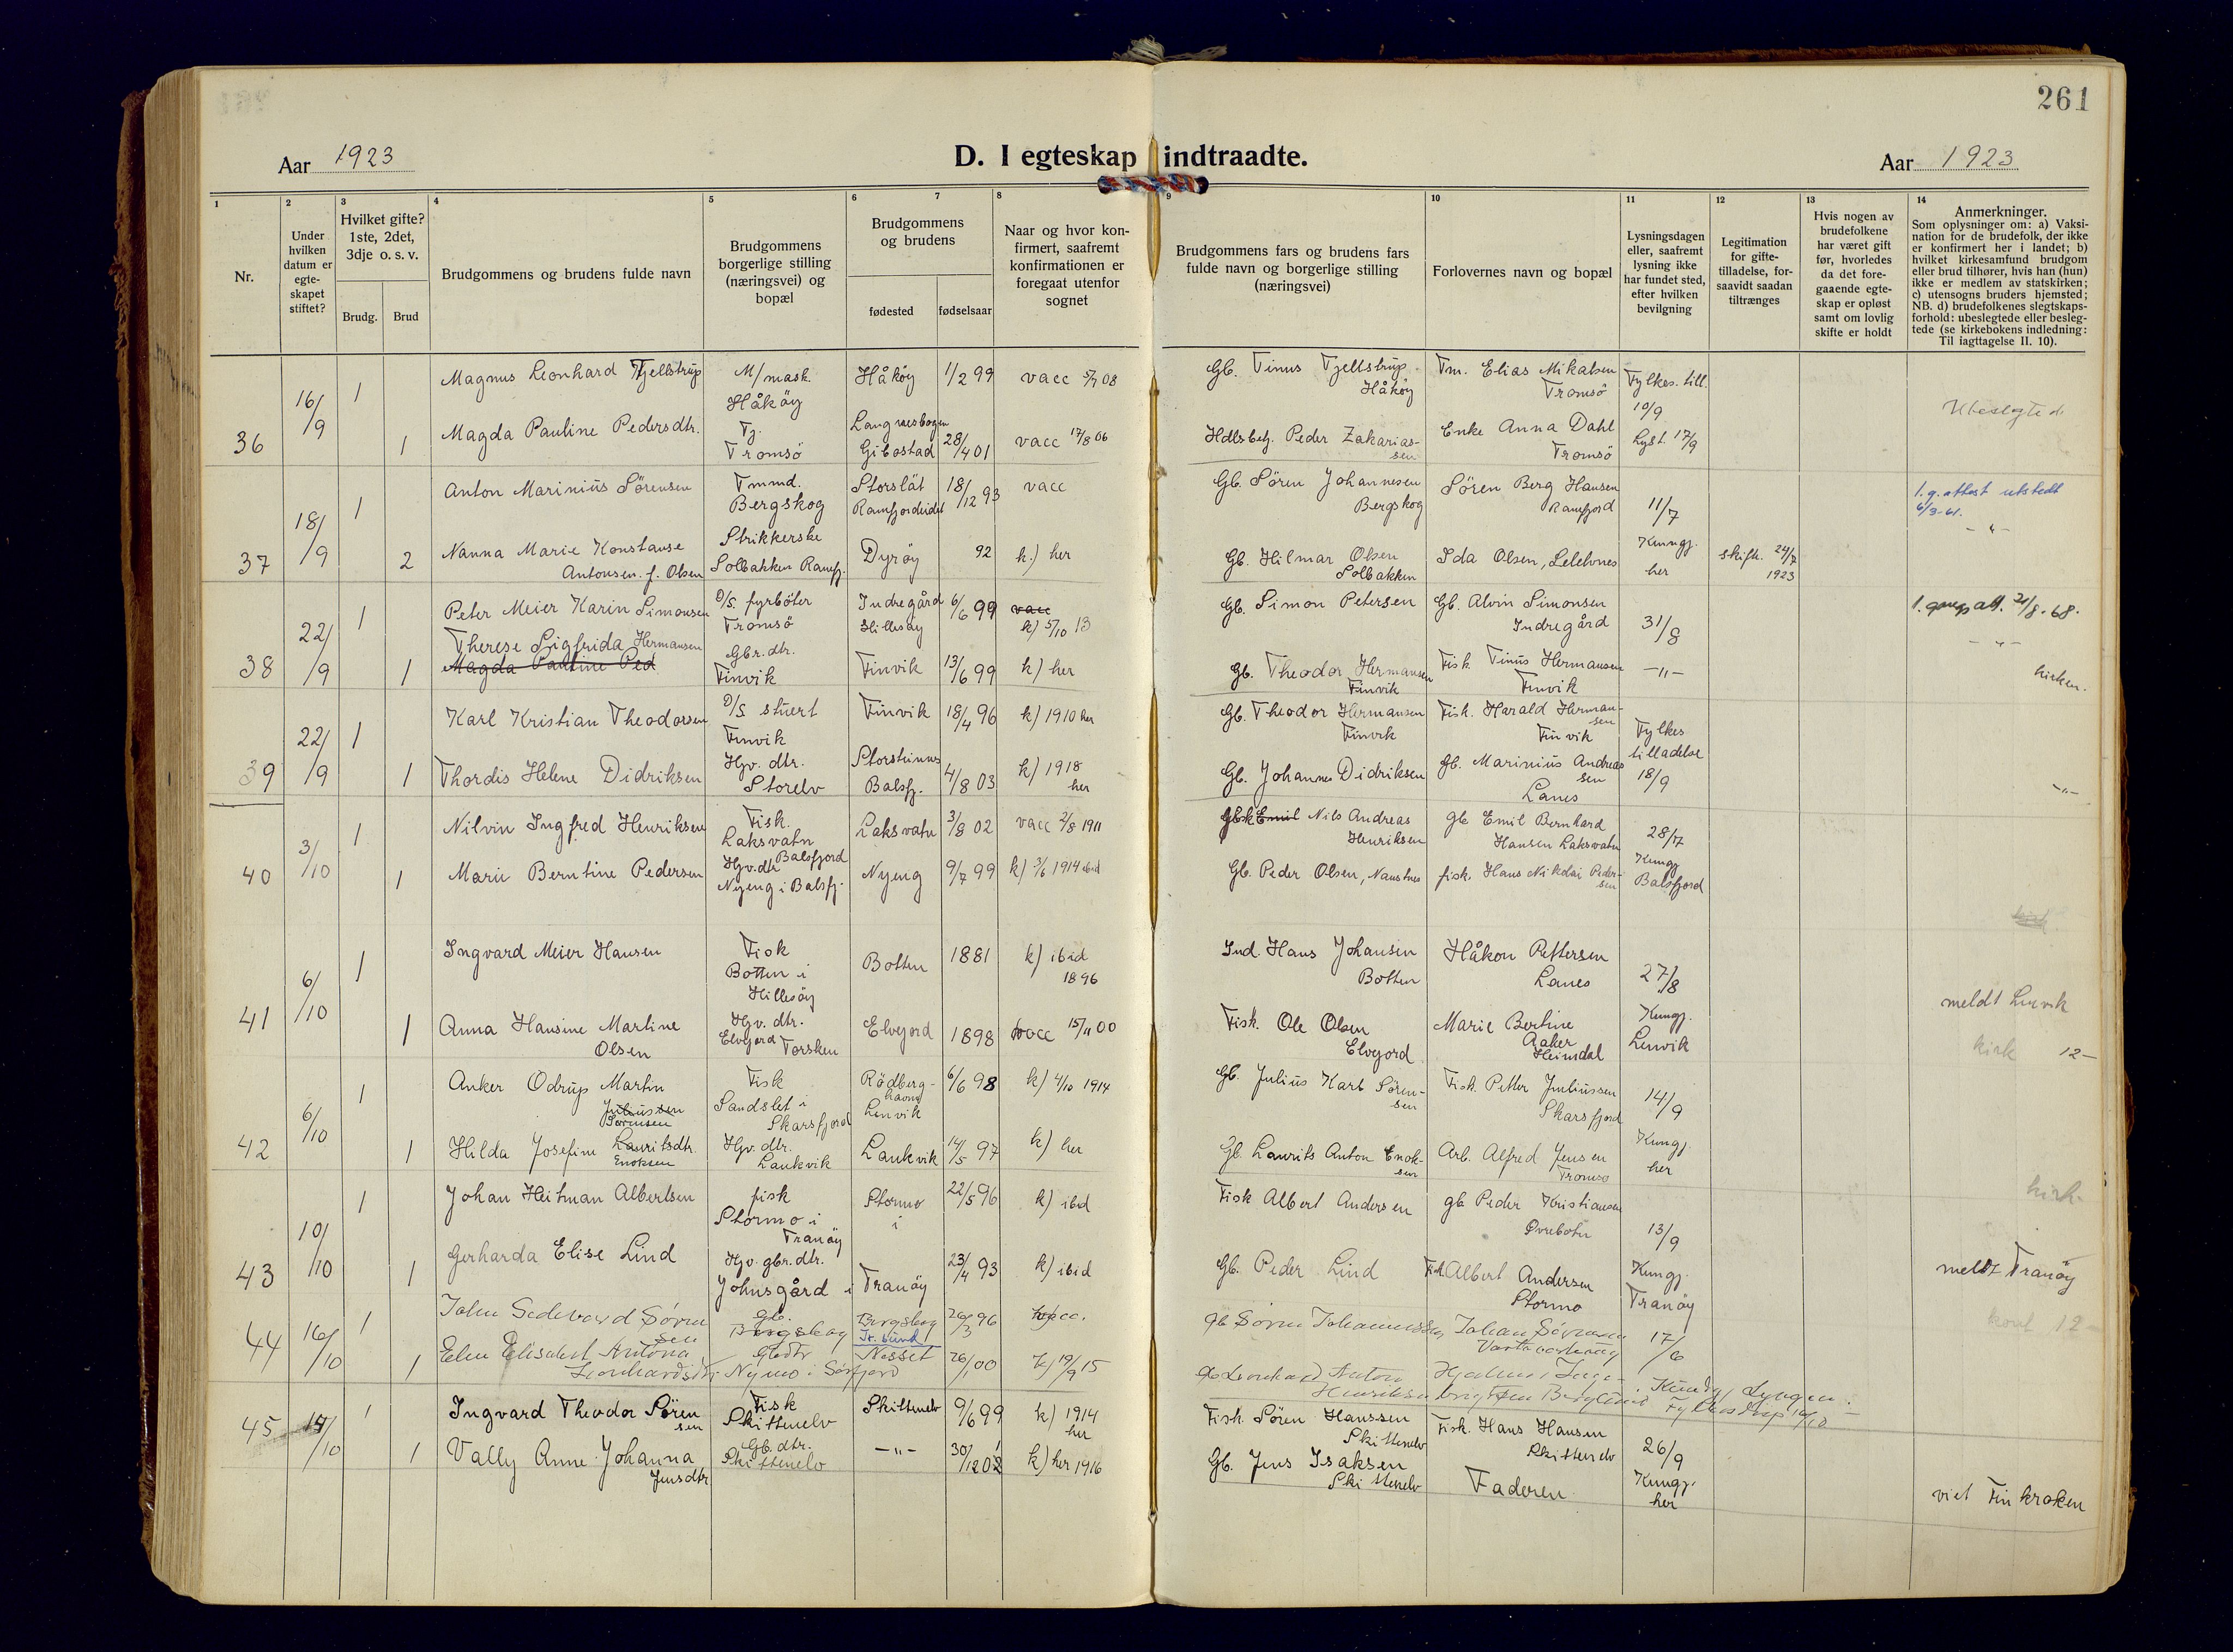 261
Aar 1923
D. I egteskap indtraadte.
Aar 1923
1
2
3
4
5
6
7
8
9
10
11
12
13
14
Nr.
Under hvilken datum er egte-skapet stiftet?
Hvilket gifte? 1ste, 2det, 3dje o. s. v.
Brudg.
Brud
Brudgommens og brudens fulde navn
Brudgommens borgerlige stilling (næringsvei) og bopæl
Brudgommens og brudens
fødested
fødselsaar
Naar og hvor kon-firmert, saafremt konfirmationen er foregaat utenfor sognet
Brudgommens fars og brudens fars fulde navn og borgerlige stilling (næringsvei)
Forlovernes navn og bopæl
Lysningsdagen eller, saafremt lysning ikke har fundet sted, efter hvilken bevilgning
Legitimation for gifte-tilladelse, for-saavidt saadan tiltrænges
Hvis nogen av brudefolkene har været gift før, hvorledes da det fore-gaaende egte-skap er opløst samt om lovlig skifte er holdt
Anmerkninger.
Som oplysninger om: a) Vaksi-nation for de brudefolk, der ikke er konfirmert her i landet; b) hvilket kirkesamfund brudgom eller brud tilhører, hvis han (hun) ikke er medlem av statskirken; c) utensogns bruders hjemsted; NB. d) brudefolkenes slegtskaps-forhold: ubeslegtede eller besleg-tede (se kirkebokens indledning: Til iagttagelse II. 10).
36 16/9 1 Magnus Leonhard Tjellstrup M/mask. Håköy Håköy 1/2 99 vacc 5/7 08 Gb. Tinus Tjellstrup Håköy Tm. Elias Mikalsen Tromsö Fylkes. till. 10/9 Ubeslegtede
1 Magda Pauline Pedersdtr. Tj. Tromsö Langnesbogen Gibostad 28/4 01 vacc 17/8 06 Hdlsbetj. Peder Zakarias-sen Enke Anna Dahl Tromsö Lyst 17/9
37 18/9 1 Anton Marinius Sörensen Tmmd. Bergskog Storslät Ramfjordeidet 18/12 93 vacc Gb. Sören Johannesen Bergskog Sören Berg Hansen Ramfjord 11/7 1. g. attest utstedt 6/3-61. -"-
2 Nanna Marie Konstanse Antonsen f. Olsen Strikkerske Solbakken Ramfj. Dyröy 92 k.) her Gb. Hilmar Olsen Solbakken Ida Olsen, Kungj. her skift. 24/7 1923
38 22/9 1 Peter Meier Karin Simonsen D/S. fyrböter Tromsö Indregård Hillesöy 6/6 99 vacc k) 5/10 13 Gb. Simon Petersen Gb. Alvin Simonsen Indregård 31/8 1. gangs att. 21/8-68. -"-
1 Therese Sigfrida Hermansen Magda Pauline Ped Gbr. dtr. Finvik Finvik 13/6 99 k) her Gb. Theodor Hermansen Finvik Fisk Tinus Hermansen Finvik -"- kirken.
39 22/9 1 Karl Kristian Theodorsen D/S stuert Finvik Finvik 18/4 96 k) 1910 her Gb. Theodor Hermansen Finvik Fisk. Harald Herman-sen Finvik Fylkes tilladelse 18/9
1 Thordis Helene Didriksen Hjv. dtr. Storelv Storsteinnes Balsfj. 4/8 03 k) 1918 her Gb. Johannes Didriksen gb. Marinius Andreas sen Lanes -"-
40 3/10 1 Nilvin Ingfred Henriksen Fisk. Laksvatn Balsfjord Laksvatn 3/8 02 vacc 2/8 1911 Emil Nils Andreas Henriksen gb Emil Bernhard Hansen Laksvatn 28/7 Kungj Balsfjord
1 Marie Berntine Pedersen Hjv. dtr Nyeng i Balsfj. Nyeng 9/7 99 k) 3/6 1914 ibid Gb. Peder Olsen, Naustnes fisk. Hans Nikolai Peder-sen
41 6/10 1 Ingvard Meier Hansen Fisk Botten i Hillesöy Botten 1881 k) ibid 1896 Ind. Hans Johansen Botten Håkon Pettersen Lanes 27/8 Kungj. Lenvik meldt Lenvik
1 Anna Hansine Martine Olsen Hjv. dtr. Elvejord Torsken Elvejord 1898 vacc 15/11 00 Fisk. Ole Olsen Elvejord Marie Bertine Aaker Heimdal kirk 12-
42 6/10 1 Anker Odrup Martin Juliussen Sörensen Fisk Sandslet i Skarsfjord Rödberg-havn Lenvik 6/6 98 k) 4/10 1914 Gb. Julius Karl Sören-sen Fisk. Petter Juliussen Skarsfjord 14/9
1 Hilda Josefine Lauritsdtr. Enoksen Hjv. dtr. Laukvik Laukvik 14/5 97 k) her Gb. Laurits Anton Enok-sen Arb. Alfred Jensen Tromsö Kungj. her kirk-
43 10/10 1 Johan Heitman Albertsen fisk Stormo i Tranöy Stormo i 22/5 96 k) ibid Fisk Albert Andersen gb Peder Kristiansen Övrebotn 13/9
1 Gerharda Elise Lind Hjv. gbr. dtr. Johnsgård i Tranöy 23/4 93 k) ibid Gb. Peder Lind Albert Andersen Stormo Kungj. Tranöy meldt Tranöy
44 16/10 1 Johan Sören sen Gb. Bergskog Bergskog 26/3 96 vacc. gb Sören Johannessen Johan Sörensen 17/6 12-
1 Elen Elisabet Antona Leonhardsdtr gbdtr Nymo i Sörfjord Nesset 26/1 00 k) 19/9 15 gb Leonhard Anton Henriksen Hjalmar Berglund Kundgj Lyngen. Fylkesdisp 16/10
45 14/10 1 Ingvard Theodor Sören sen Fisk Skittenelv Skittenelv 9/6 99 k) 1914 her Fisk. Sören Hanssen Skittenelv Fisk. Hans Hansen Skittenelv 26/9
1 Vally Anne Johanna Jensdtr Gb. dtr. Skittenelv -"- 30/12 02 k) her 1916 Gb. Jens Isaksen Skittenelv Faderen Kungj. her viet Finkroken